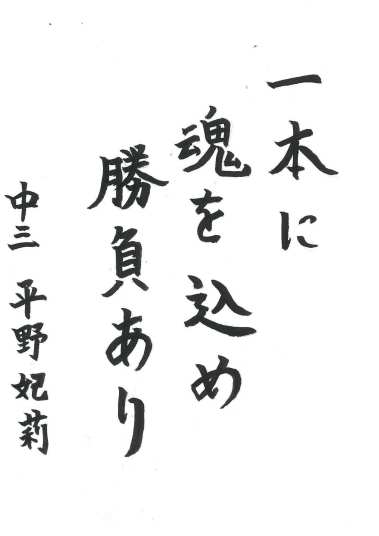 一本に
魂を込め
勝負あり
中三 平野妃莉